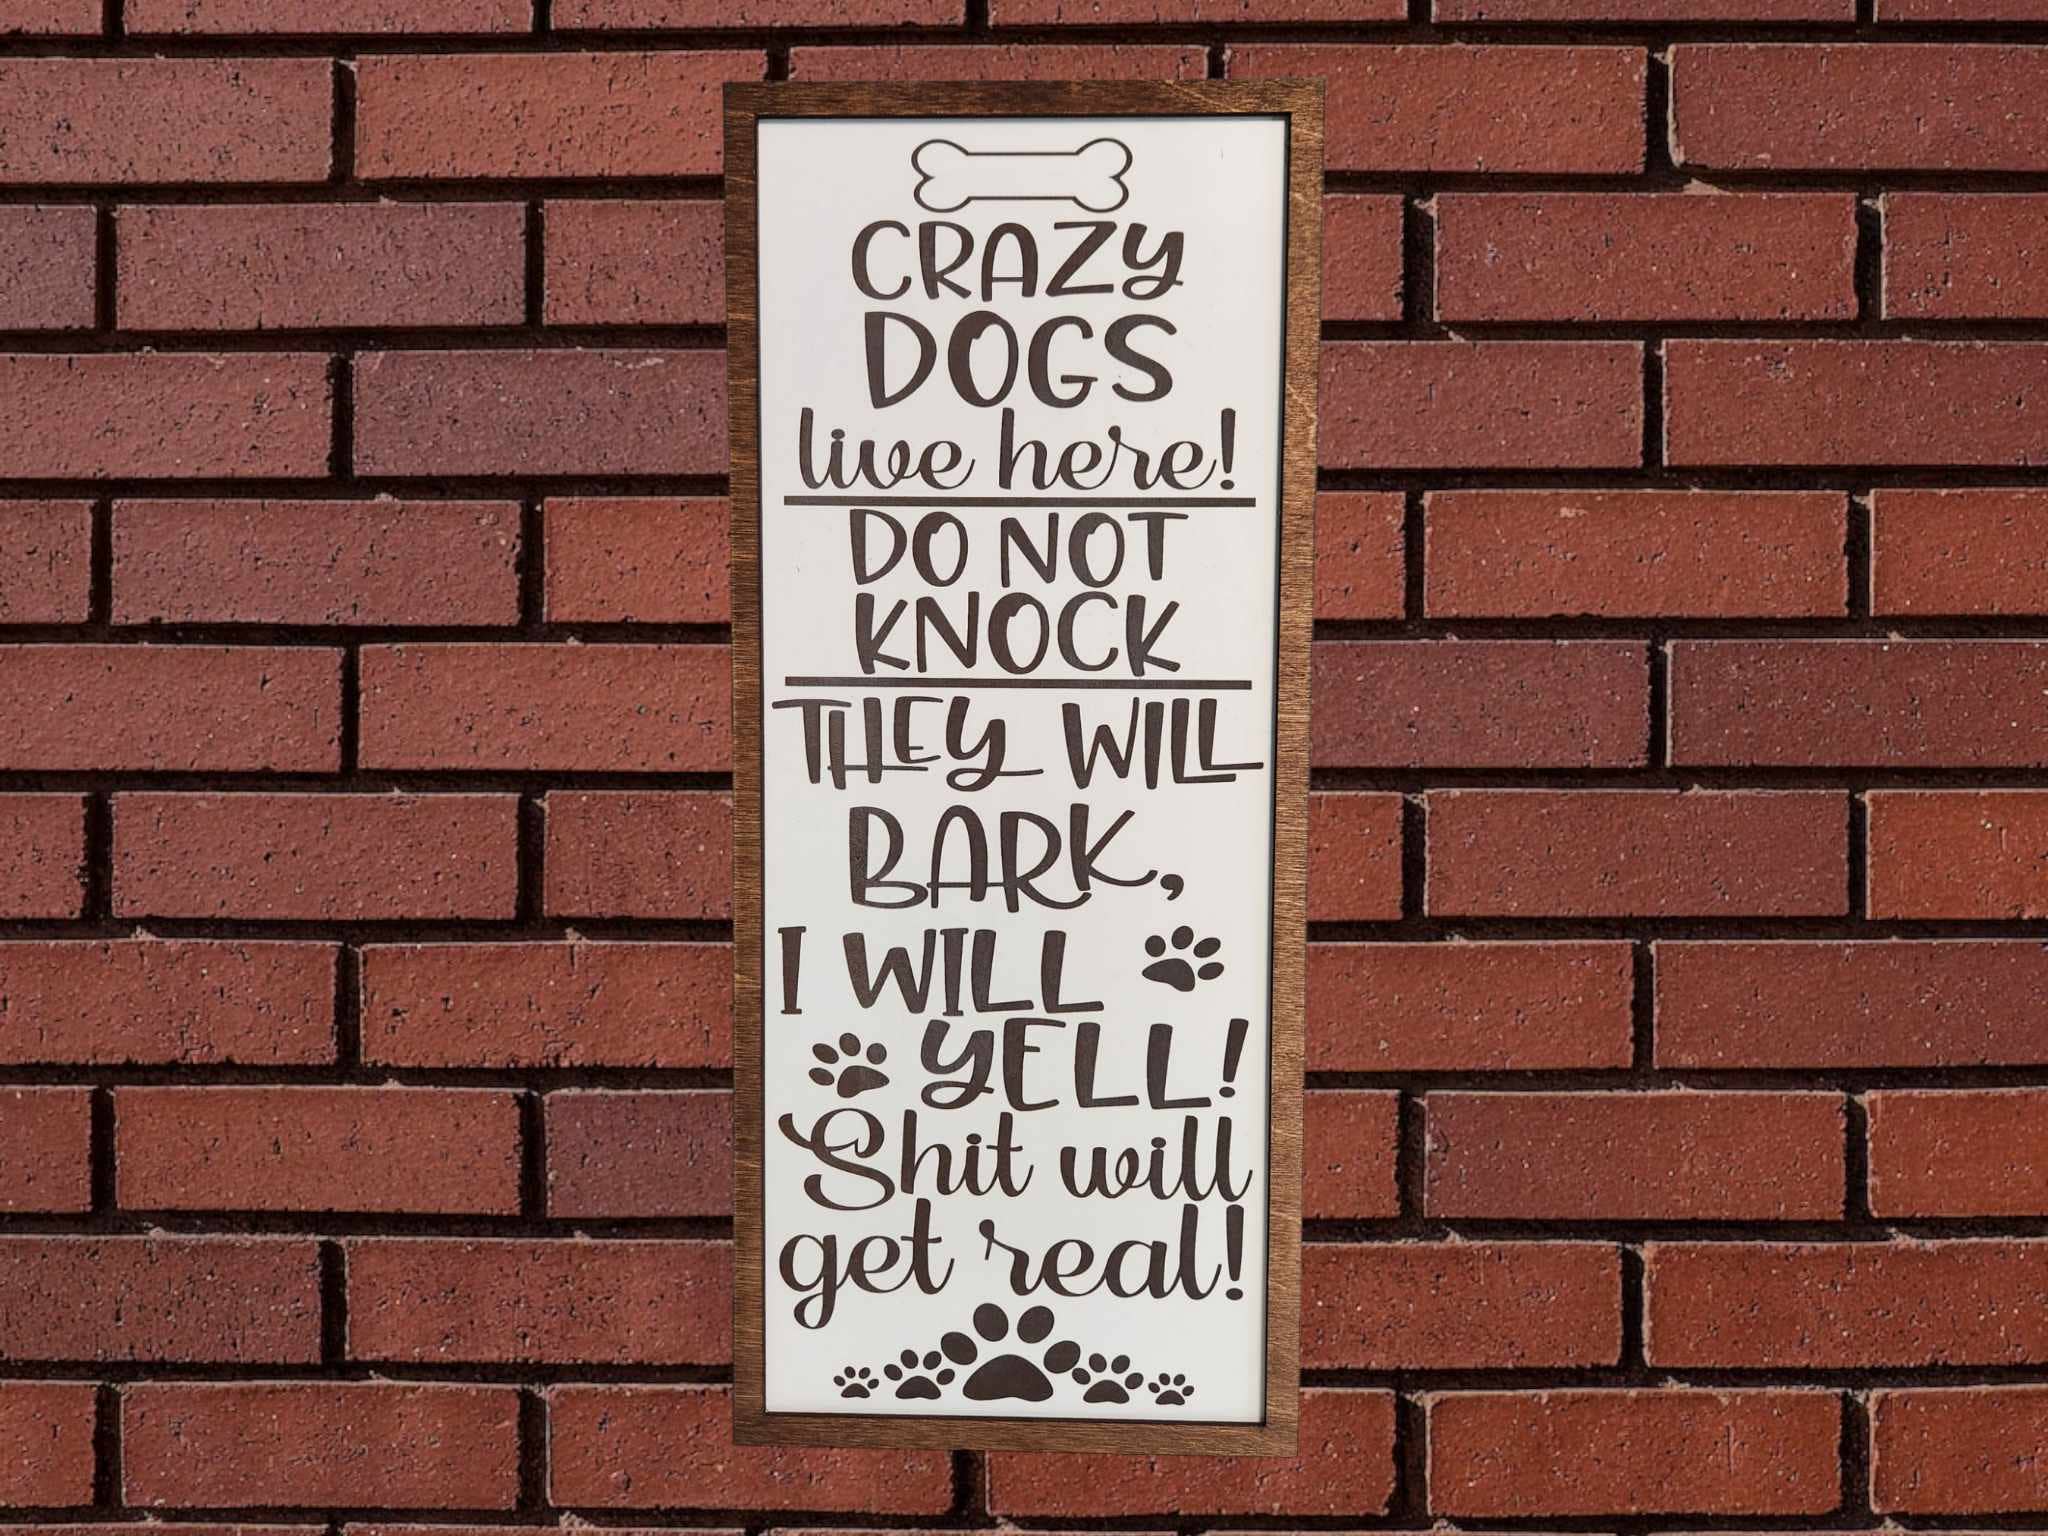 CRAZY
DOGS
live here!
DO NOT
KNOCK
THEY WILL
BARK,
I WILL
YELL!
Shit will
get real!